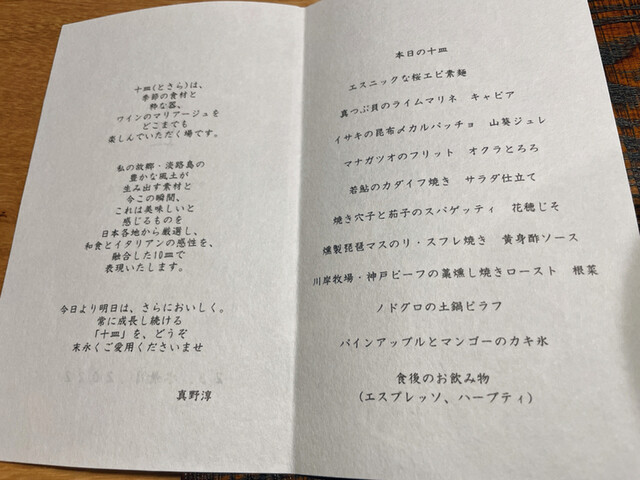 十皿(とさら)は、
季節の食材と
粋な器、
ワインのマリアージュを
どこまでも
楽しんでいただく場です。
私の故郷・淡路島の
豊かな風土が
生み出す素材と
今この瞬間、
これは美味しいと
感じるものを
日本各地から厳選し、
和食とイタリアンの感性を、
融合した10皿で
表現いたします。
今日より明日は、さらにおいしく。
常に成長し続ける
「十皿」を、どうぞ
末永くご愛用くださいませ
真野淳
本日の十皿
エスニックな桜エビ素麺
真つぶ貝のライムマリネ　キャビア
イサキの昆布〆カルパッチョ　山葵ジュレ
マナガツオのフリット　オクラとろろ
若鮎のカダイフ焼き　サラダ仕立て
焼き穴子と茄子のスパゲッティ　花穂じそ
燻製琵琶マスのリ・スフレ焼き　黄身酢ソース
川岸牧場・神戸ビーフの藁燻し焼きロースト　根菜
ノドグロの土鍋ピラフ
パインアップルとマンゴーのカキ氷
食後のお飲み物
(エスプレッソ、ハーブティ)